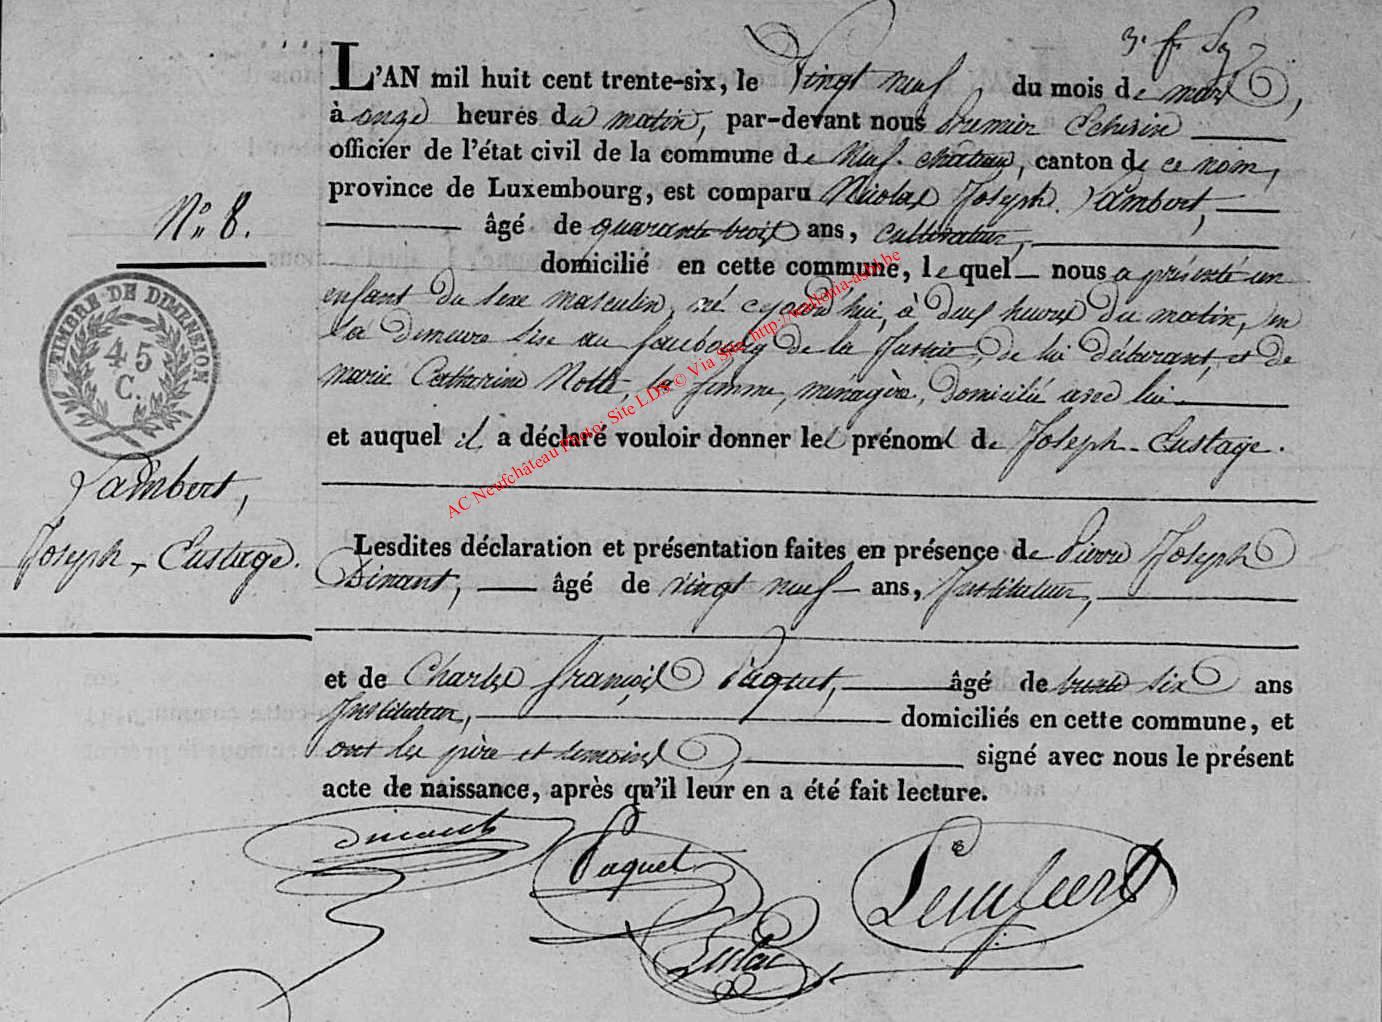 3. f.
L'AN mil huit cent trente-six, le Vingt neuf du mois de mars,
à onze heures du matin, par-devant nous Premier Echevin
officier de l'état civil de la commune de Neuf-château, canton de ce nom,
province de Luxembourg, est comparu Nicolas Joseph Lambert,
N° 8.
âgé de quarante trois ans, cultivateur,
domicilié en cette commune, lequel nous a présenté un
enfant du sexe masculin, né cejourd'hui, à deux heures du matin, en
sa demeure sise au faubourg de la Justice, de lui déclarant, et de
marie Catharine Nollet, sa femme, ménagère, domicilié avec lui.
TIMBRE DE DIMENSION
45
C.
et auquel il a déclaré vouloir donner les prénoms de Joseph-Eustage.
Lambert,
Joseph-Eustage.
Lesdites déclaration et présentation faites en présence de Pierre Joseph
Dinant, âgé de vingt neuf ans, Instituteur,
et de Charles françois Paquet, âgé de trente six ans
Instituteur, domiciliés en cette commune, et
ont les père et témoins, signé avec nous le présent
acte de naissance, après qu'il leur en a été fait lecture.
dinant
Paquet
AC Neufchâteau Photo: Site LDS © Via Site http://wallonia-asbl.be